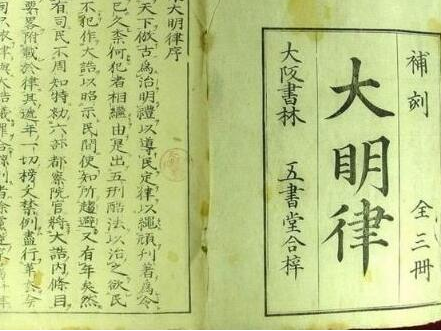 補刻　全三冊
大明律
大阪書林　五書堂合梓
大明律序
天下倣古為治明禮以導民定律以繩頑刊著為令
已久奈何犯者相繼由是出五刑酷法以治之欲民
不犯作大誥以昭示民間使知所趨避又有年矣然
有司民不周知特勑六部都察院官將大誥内條目
要畧附載於律其逓年一切榜文禁例盡行革去今
依律與大誥議罪合黥刺者除黨逆